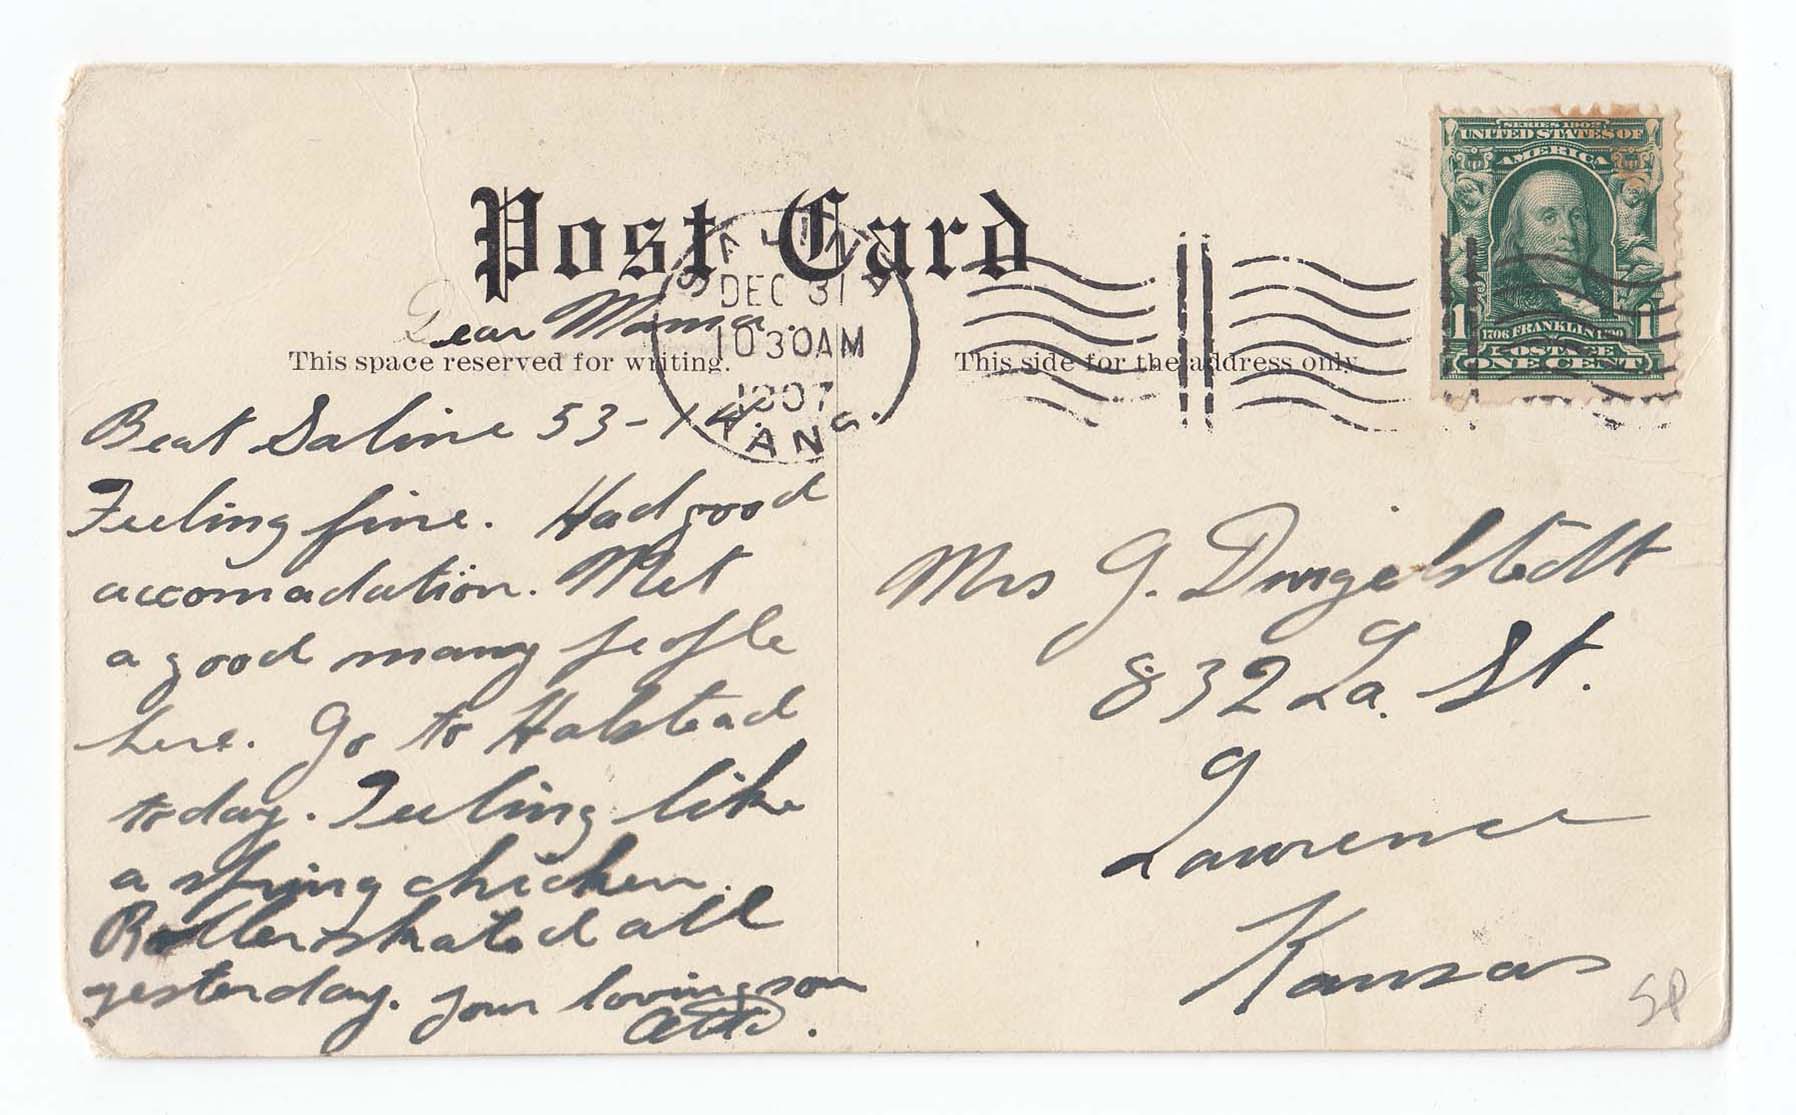 SERIES 1902
UNITED STATES OF
AMERICA
1706 FRANKLIN 1790
1 1
POSTAGE
ONE CENT
Post Card
SALINA
DEC 31
1030AM
1907
KANS.
This space reserved for writing.
This side for the address only.
Dear Mama.
Beat Saline 53-14.
Feeling fine. Had good
accomadation. Met
a good many people
here. Go to Halstead
today. Feeling like
a spring chicken.
Roller skated all
yesterday. Your loving son
Otto.
Mrs G. Dingelstedt
832 La. St.
Lawrence
Kansas